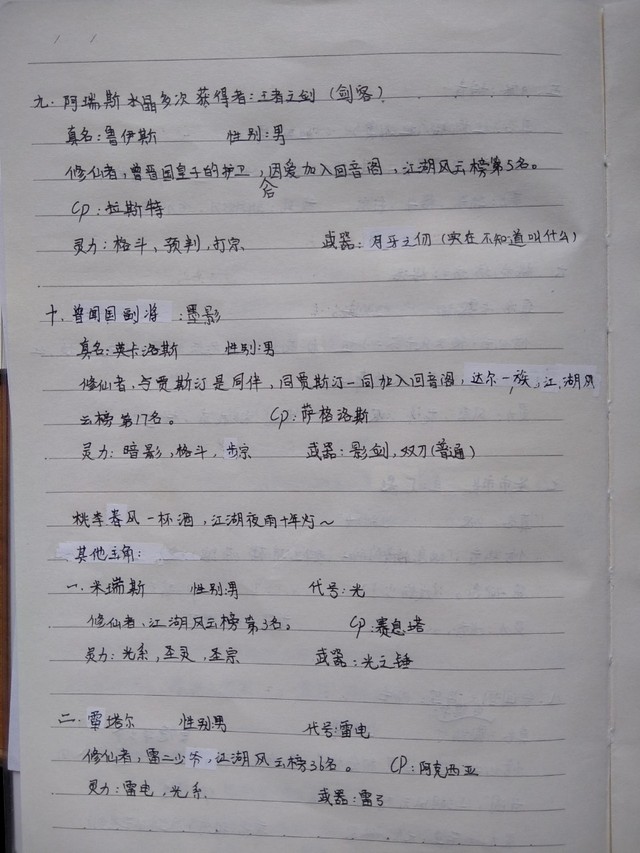 九.阿瑞斯水晶多次获得者:王者之剑(剑客)
真名:鲁伊斯 性别:男
修仙者,曾晋国皇子的护卫,因爱加入回音阁,江湖风云榜第5名。
后
CP:拉斯特
灵力:格斗、预判,打宗 武器:月牙之仞(实在不知道叫什么)
十.曾闻国副将:墨影
真名:莫卡洛斯 性别:男
修仙者,与贾斯汀是同伴,同贾斯汀一同加入回音阁,达尔一族,江湖风
云榜第17名。 CP:萨格洛斯
灵力:暗影,格斗,步宗 武器:影剑,双刀(普通)
桃李春风一杯酒,江湖夜雨十年灯~
其他主角:
一.米瑞斯 性别:男 代号:光
修仙者、江湖风云榜第3名。 CP:赛息塔
灵力:光系,圣灵,圣宗 武器:光之锤
二.雷塔尔 性别男 代号:雷电
修仙者,雷二少爷,江湖风云榜36名。 CP:阿克西亚
灵力:雷电,光系 武器:雷弓